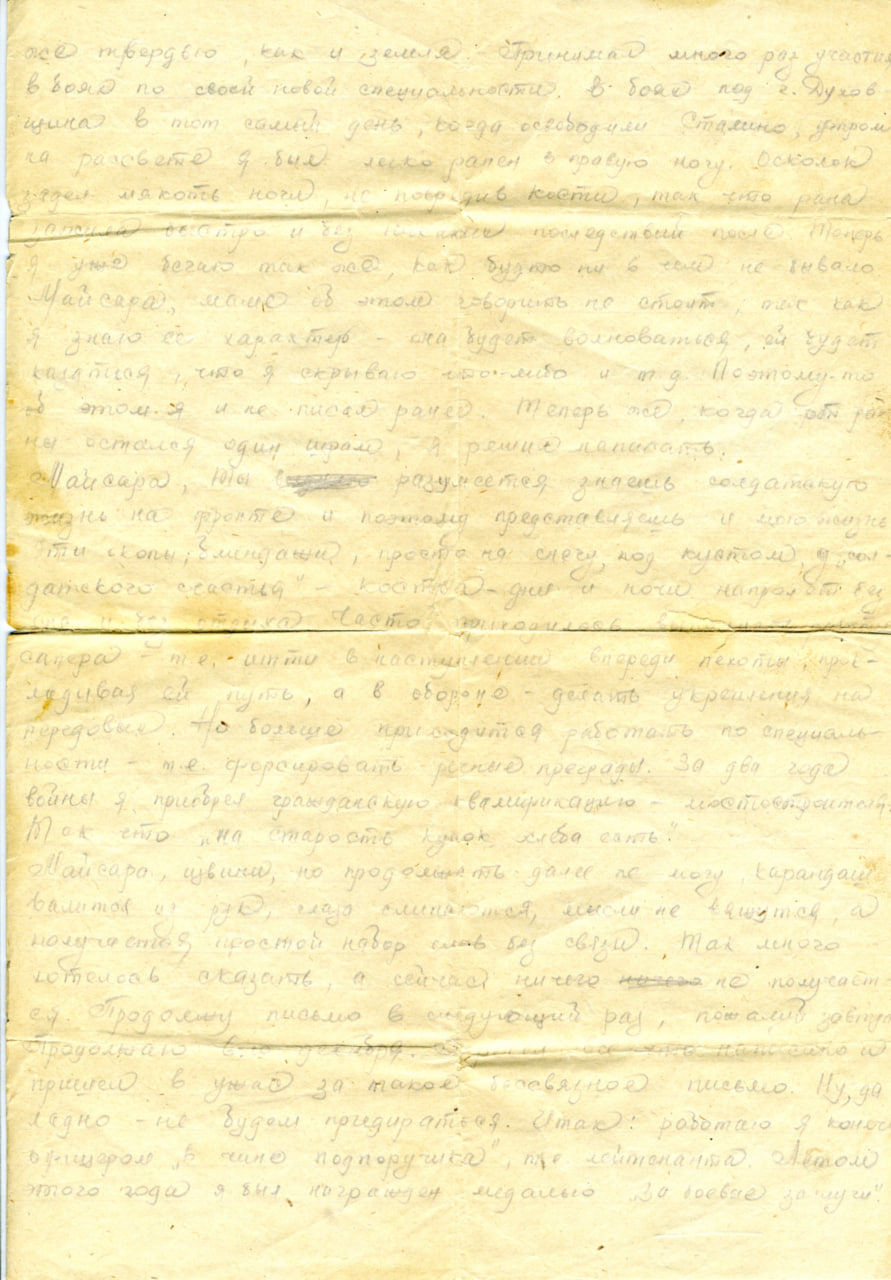 же твердью, как и земля. Принимал много раз участия
в боях по своей новой специальности. В боях под г. Духов
щина в тот самый день, когда освободили Сталино, утром
на рассвете я был легко ранен в правую ногу. Осколок
задел мякоть ноги, не повредив кости, так что рана
зажила быстро и без последствий после. Теперь
я уже бегаю так же, как будто ни в чем не бывало
Майсара, маме об этом говорить не стоит, так как
я знаю её характер – она будет волноваться, ей будет
казаться, что я скрываю что-либо и т.д. Поэтому-то
об этом я и не писал ранее. Теперь же, когда от ра
ны остался один шрам, я решил написать.
Майсара, Ты разумеется знаешь солдатскую
жизнь на фронте и поэтому представляешь и мою жизнь
Эти окопы, блиндажи, просто на снегу, под кустом, у „сол-
датского счастья" – костра – дни и ночи напролёт без
сна и без отдыха. Часто приходилось
сапера – т.е. итти в наступлении впереди пехоты, прок-
ладывая ей путь, а в обороне – делать укрепления на
передовых. Но больше приходится работать по специаль-
ности – т.е. форсировать речные преграды. За два года
войны я приобрел гражданскую квалификацию – мостостроителя.
Так что „на старость кусок хлеба есть".
Майсара, извини, но продолжать далее не могу, карандаш
валится из рук, глаза слипаются, мысли не вяжутся, а
получается простой набор слов без связи. Так много
хотелось сказать, а сейчас ничего ничего не получает-
ся. Продолжу письмо в следующий раз, пожалуй завтра
Продолжаю декабря. все что написано и
пришел в ужас за такое бессвязное письмо. Ну, да
ладно – не будем придираться. Итак: работаю я
офицером „в чине подпоручика", т.е. лейтенанта. Летом
этого года я был награжден медалью „За боевые заслуги".